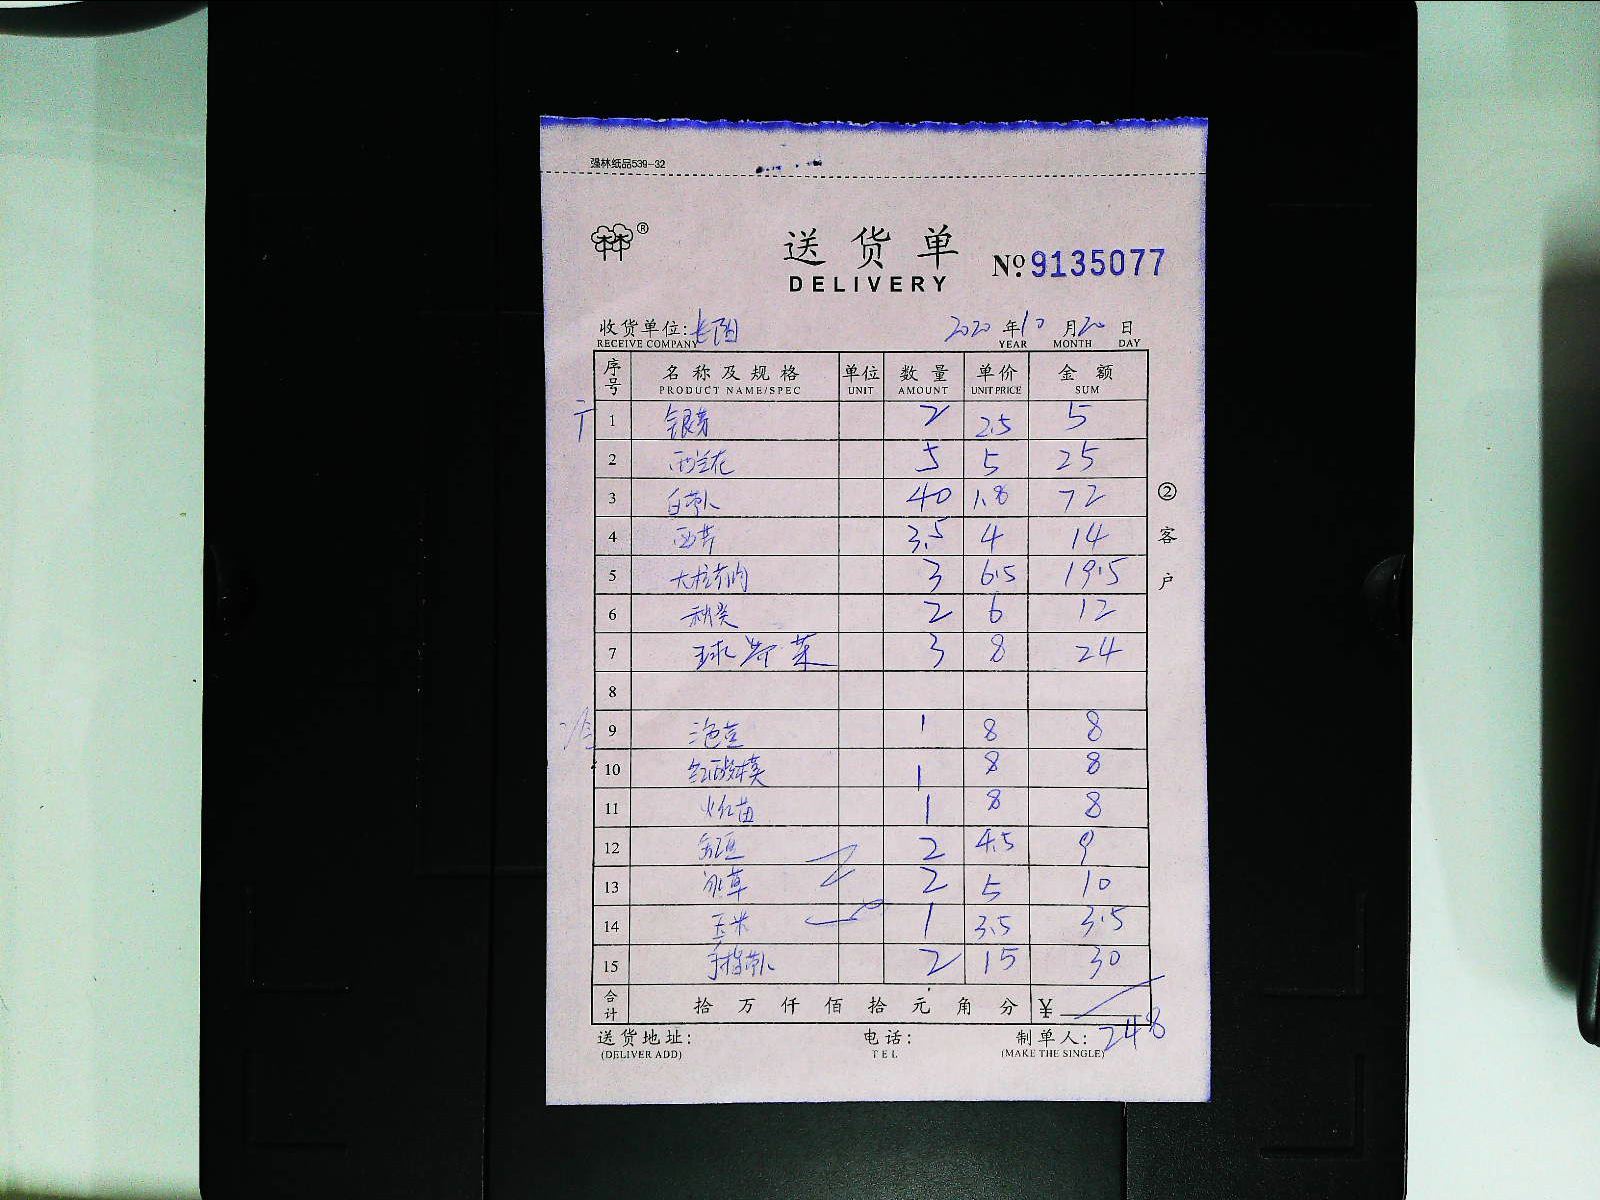 强林纸品539-32
林®
送货单 №9135077
DELIVERY
收货单位: 长阳 2020年10月20日
RECEIVE COMPANY YEAR MONTH DAY
序号 名称及规格 单位 数量 单价 金额
PRODUCT NAME/SPEC UNIT AMOUNT UNIT PRICE SUM
1 银芽 2 2.5 5
2 西兰花 5 5 25
3 白萝卜 40 1.8 72
4 西芹 3.5 4 14
5 3 6.5 19.5
6 秋葵 2 6 12
7 球茶菜 3 8 24
8
9 1 8 8
10 红酸模 1 8 8
11 1 8 8
12 2 4.5 9
13 冰草 2 5 10
14 玉米 1 3.5 3.5
15 手指萝卜 2 15 30
合计 拾万仟佰拾元角分 ¥
248
送货地址: 电话: 制单人:
(DELIVER ADD) TEL (MAKE THE SINGLE)
②客户